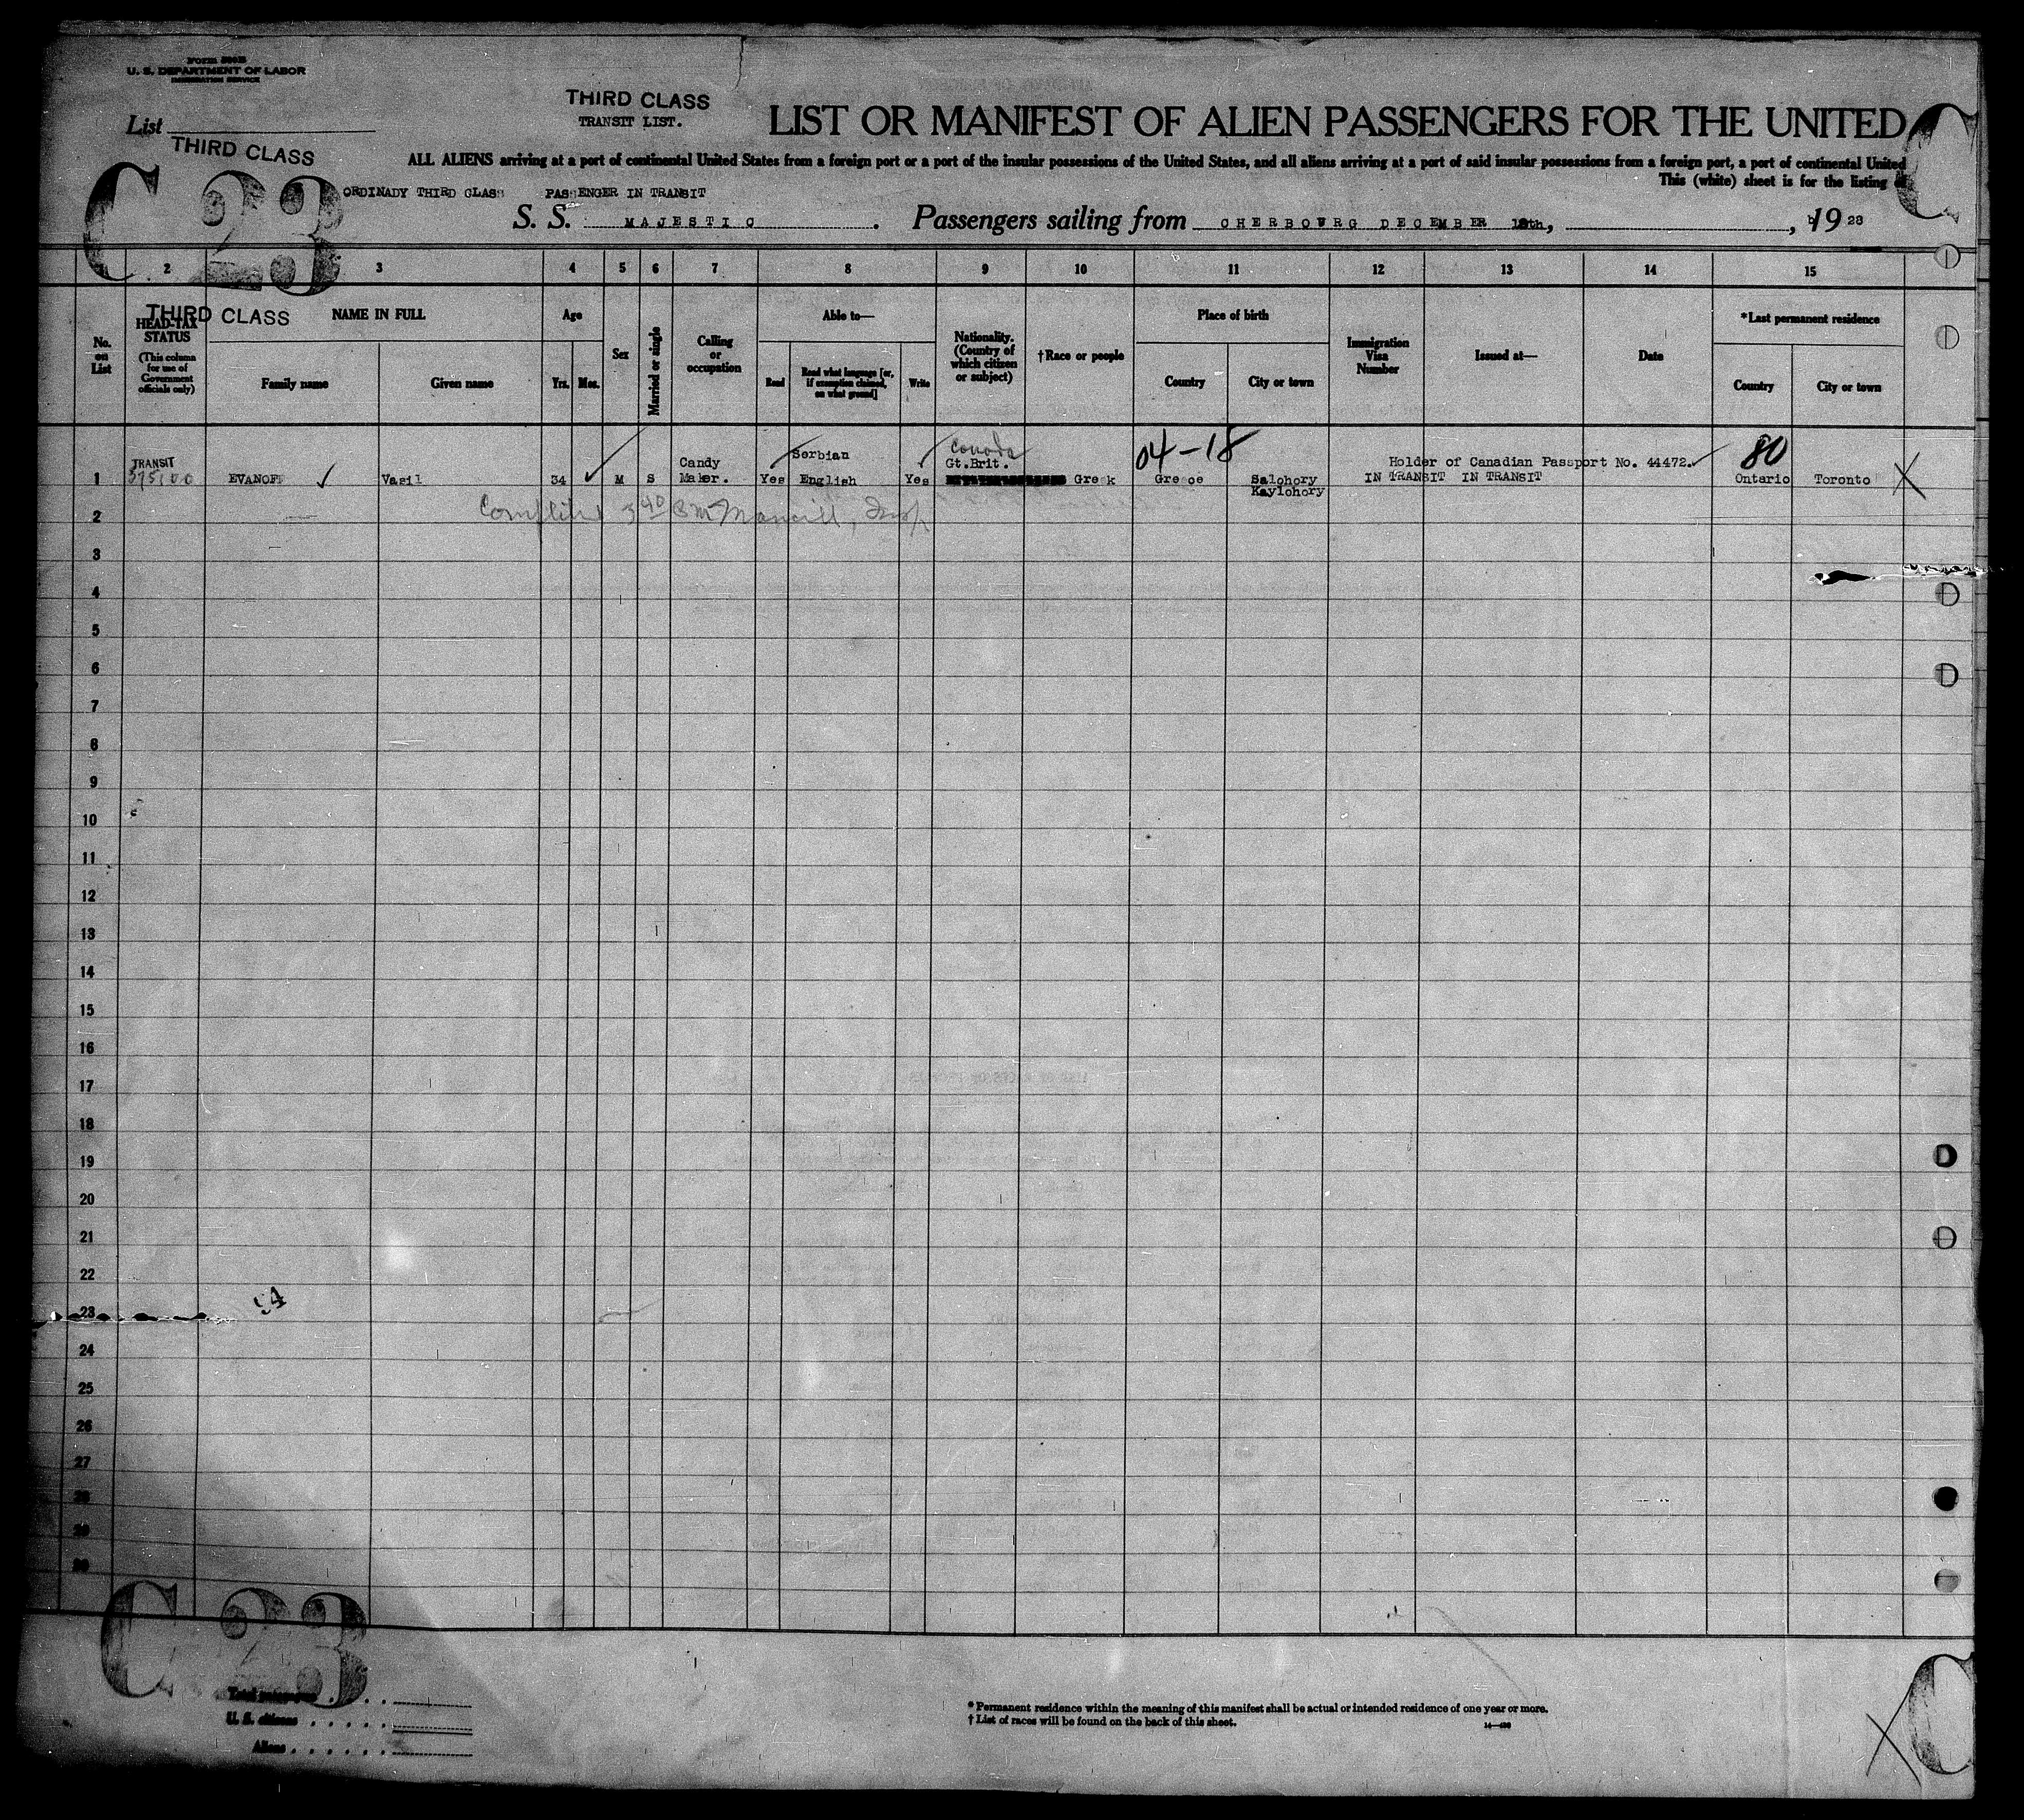 U. S. DEPARTMENT OF LABOR
IMMIGRATION SERVICE
List
THIRD CLASS
TRANSIT LIST.
LIST OR MANIFEST OF ALIEN PASSENGERS FOR THE UNITED
THIRD CLASS
C 23
ALL ALIENS arriving at a port of continental United States from a foreign port or a port of the insular possessions of the United States, and all aliens arriving at a port of said insular possessions from a foreign port, a port of continental United
This (white) sheet is for the listing of
ORDINADY THIRD CLASS PASSENGER IN TRANSIT
S. S. MAJESTIC. Passengers sailing from CHERBOURG DECEMBER , , 1928
2 3 4 5 6 7 8 9 10 11 12 13 14 15
THIRD CLASS
No. on List
HEAD-TAX STATUS
(This column for use of Government officials only)
NAME IN FULL
Family name
Given name
Age
Yrs.
Mos.
Sex
Married or single
Calling or occupation
Able to—
Read
Read what language [or, if exemption claimed, on what ground]
Write
Nationality. (Country of which citizen or subject)
†Race or people
Place of birth
Country
City or town
Immigration Visa Number
Issued at—
Date
*Last permanent residence
Country
City or town
Canada
04-18
80
TRANSIT
Serbian
Candy
Gt.Brit.
Holder of Canadian Passport No. 44472.
1 EVANOFF Vasil 34 M S Maker. Yes English Yes Greek Greece Salohory IN TRANSIT IN TRANSIT Ontario Toronto X
Kaylohory
2
3
4
5
6
7
8
9
10
11
12
13
14
15
16
17
18
19
20
21
22
23
94
24
25
26
27
28
29
30
C 23
Total passengers
U. S. citizens
Aliens
* Permanent residence within the meaning of this manifest shall be actual or intended residence of one year or more.
† List of races will be found on the back of this sheet.
X C